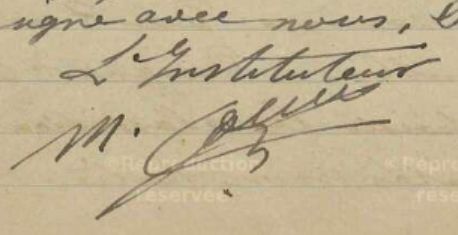 signé avec nous,
L'Instituteur
M.
© Reproduction
réservée
© Repro
rése